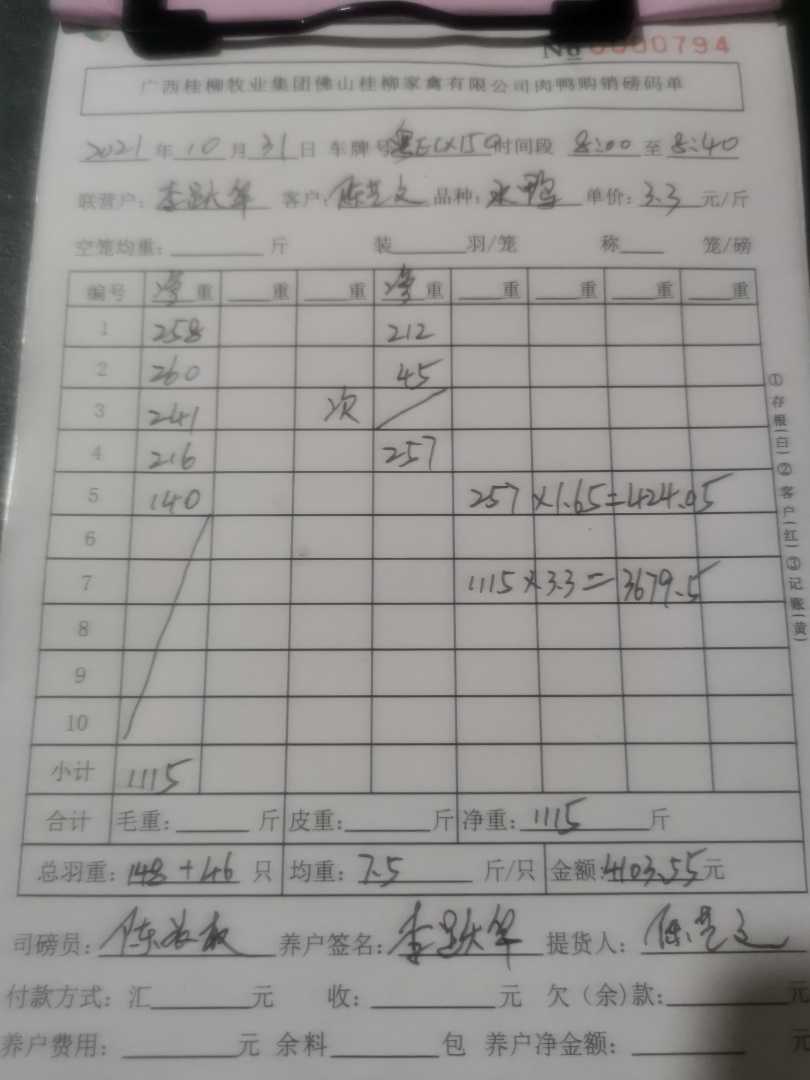 No 0000794
广西桂柳牧业集团佛山桂柳家禽有限公司肉鸭购销磅码单
2021年10月31日 车牌号 时间段 8:00 至 8:40
联营户:李 客户:陈 文 品种:水鸭 单价:3.3元/斤
空笼均重: 斤 装 羽/笼 称 笼/磅
编号 净重 重 重 净重 重 重 重 重
1 258 212
2 260 45
3 241 次
4 216 257
5 140 257×1.65=424.05
6
7 1115×3.3=3679.5
8
9
10
小计 1115
合计 毛重: 斤 皮重: 斤 净重:1115斤
总羽重:148+46只 均重:7.5斤/只 金额:4103.55元
司磅员:陈 养户签名:李 提货人:陈 文
付款方式:汇 元 收: 元 欠(余)款: 元
养户费用: 元 余料 包 养户净金额: 元
①存根(白)②客户(红)③记账(黄)